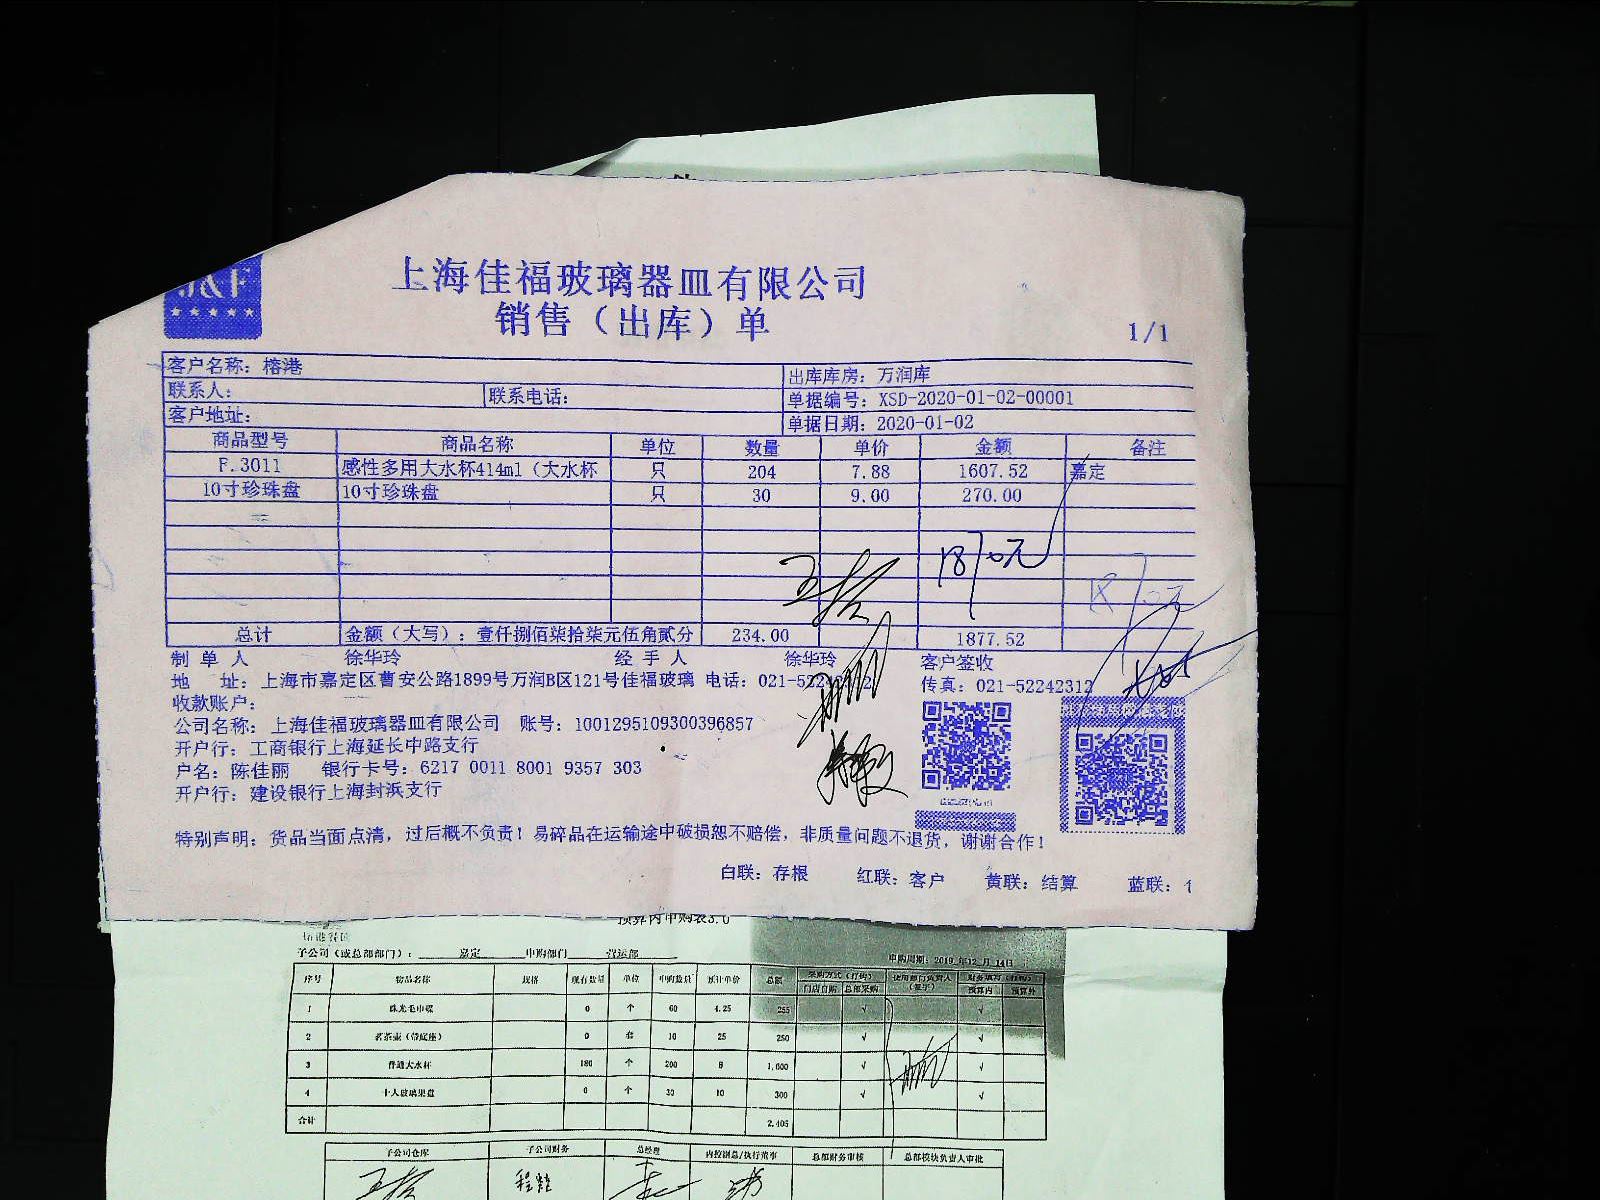 上海佳福玻璃器皿有限公司
销售（出库）单
1/1
客户名称：榕港
出库库房：万润库
联系人：
联系电话：
单据编号：XSD-2020-01-02-00001
客户地址：
单据日期：2020-01-02
商品型号 商品名称 单位 数量 单价 金额 备注
F.3011 感性多用大水杯414ml（大水杯 只 204 7.88 1607.52 嘉定
10寸珍珠盘 10寸珍珠盘 只 30 9.00 270.00
1870元
总计 金额（大写）：壹仟捌佰柒拾柒元伍角贰分 234.00 1877.52
制单人 徐华玲 经手人 徐华玲 客户签收
地 址：上海市嘉定区曹安公路1899号万润B区121号佳福玻璃 电话：021-52242312 传真：021-52242312
收款账户：
公司名称：上海佳福玻璃器皿有限公司 账号：1001295109300396857
开户行：工商银行上海延长中路支行
户名：陈佳丽 银行卡号：6217 0011 8001 9357 303
开户行：建设银行上海封浜支行
特别声明：货品当面点清，过后概不负责！易碎品在运输途中破损恕不赔偿，非质量问题不退货，谢谢合作！
白联：存根 红联：客户 黄联：结算 蓝联：
预算内申购表3.0
子公司（或总部部门）： 嘉定 申购部门 营运部 申购周期：2019年12月14日
序号 物品名称 规格 现有数量 单位 申购数量 预计单价 总额 采购方式（打钩） 使用部门负责人（签字） 财务填写（打钩）
门店自购 总部采购 预算内 预算外
1 珠光毛巾碟 0 个 60 4.25 255 √ √
2 茗茶壶（带底座） 0 套 10 25 250 √ √
3 普通大水杯 180 个 200 8 1,600 √ √
4 十人玻璃果盘 0 个 30 10 300 √ √
合计 2,405
子公司仓库 子公司财务 总经理 内控副总/执行董事 总部财务审核 总部模块负责人审批